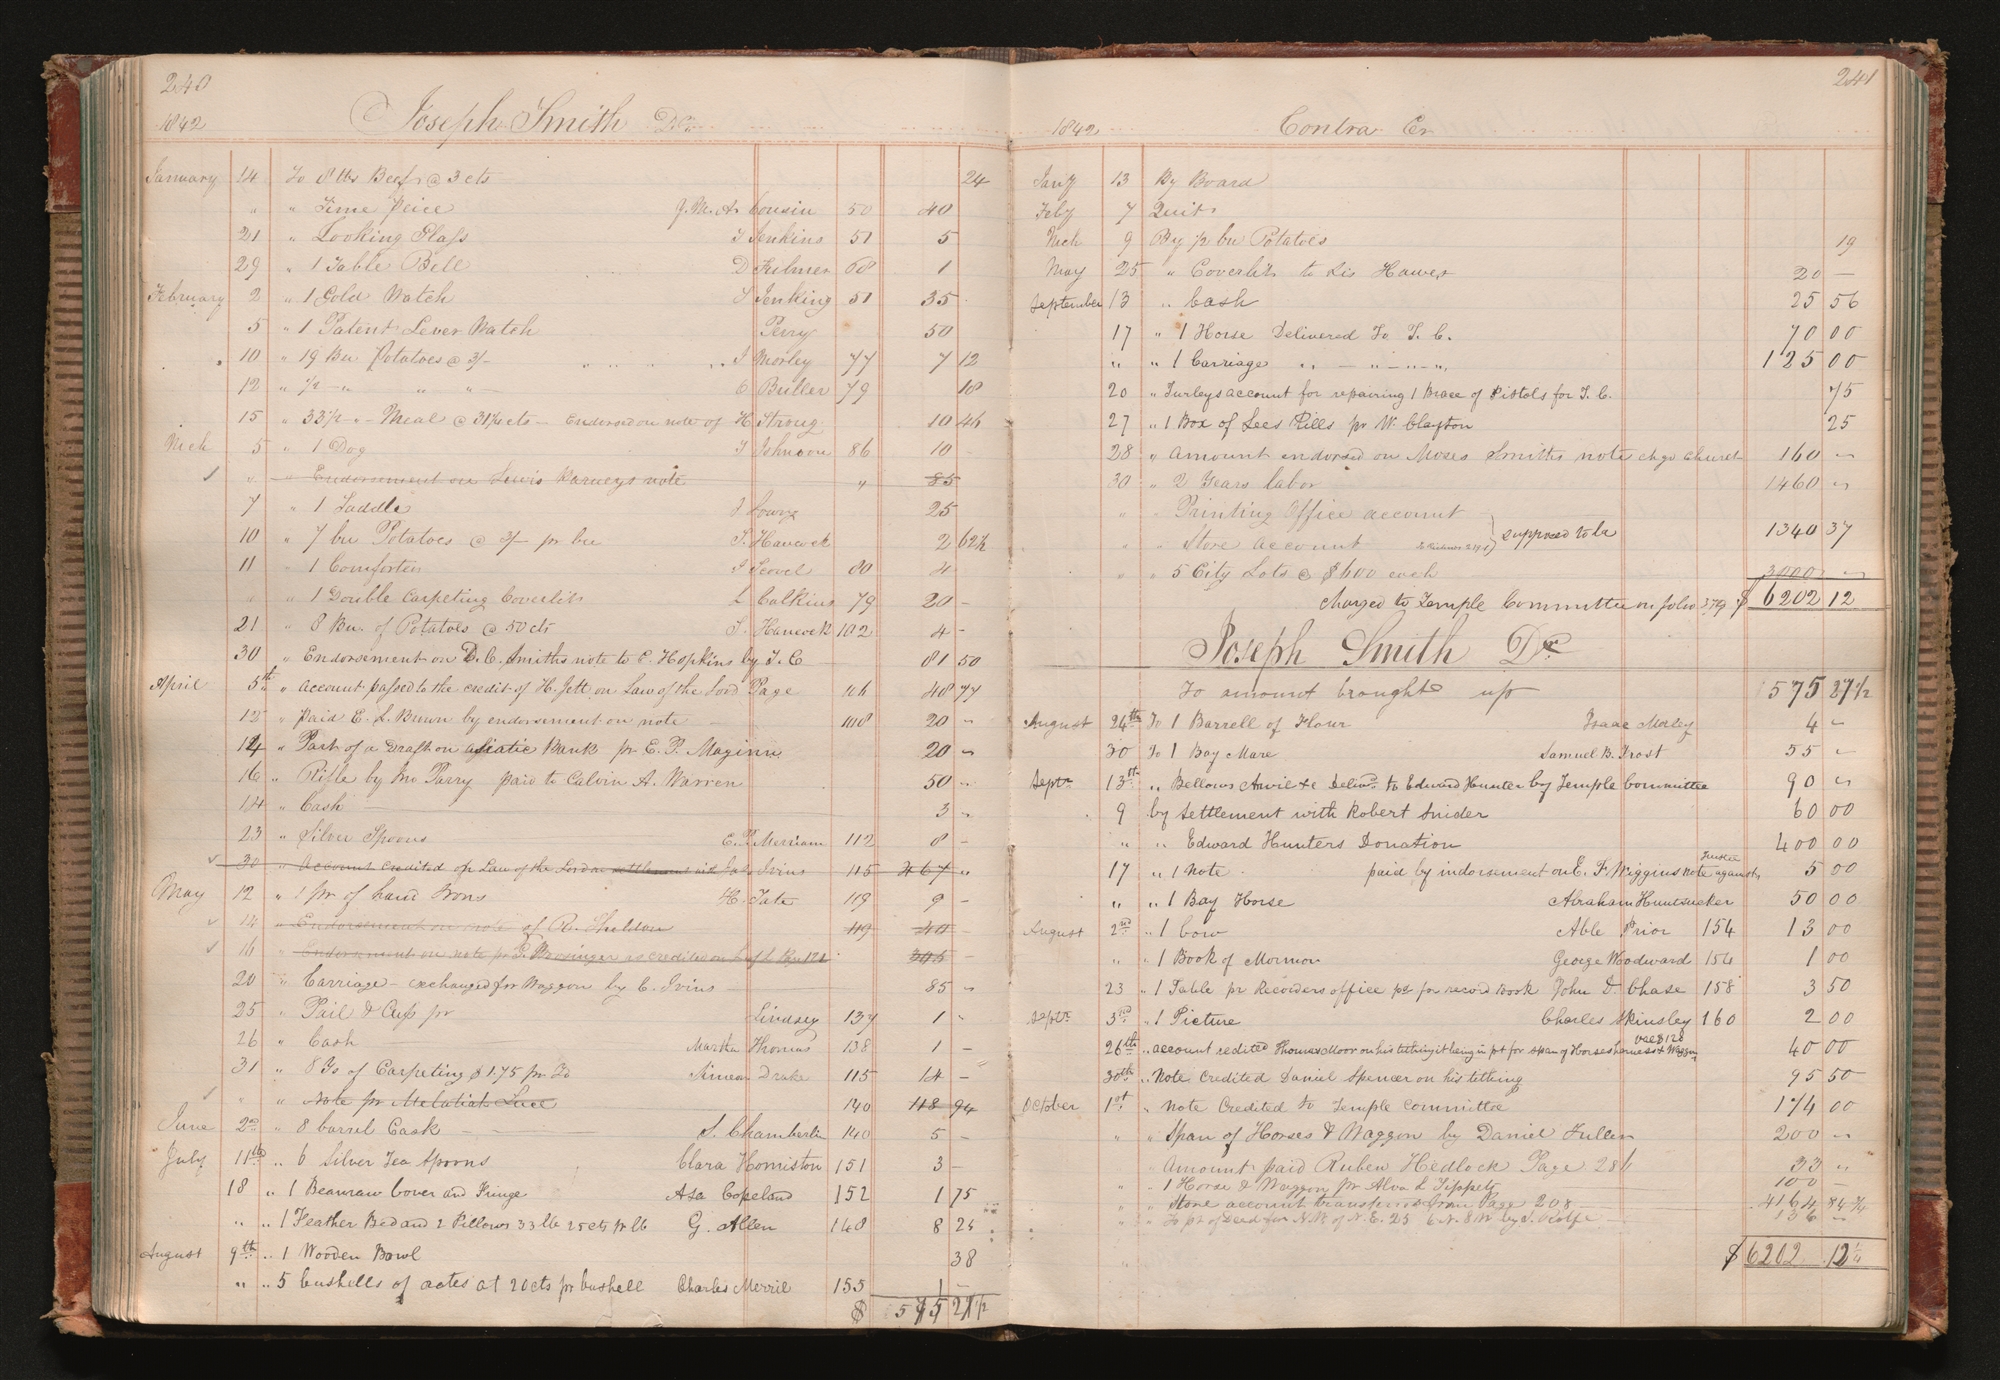 240
Joseph Smith Dr.
1842
January 14 To 8 lbs Beef @ 3 cts 24
" " Time Peice J. M. A. Cousin 50 40
21 " Looking Glass T Jenkins 51 5
29 " 1 Table Bell D Fulmer 68 1
February 2 " 1 Gold Watch T Jenking 51 35
5 " 1 Patent Lever Watch Perry 50
10 " 19 Bu Potatoes @ 3/- I Morley 77 7 12
12 " 1/2 - " " " - C Butler 79 18
15 " 33 1/2 " - Meal @ 31 1/4 cts - Endorsed on note of H Strong 10 46
Mch 5 " 1 Dog J Johnson 86 10
" " Endorsement on Lewis Karneys note " 85
7 " 1 Saddle J Lowry 25
10 " 7 bu Potatoes @ 3/- pr bu S. Hancock 2 62 1/2
11 " 1 Comforter J Scovel 80 4
" " 1 Double Carpeting Coverlits L Calkins 79 20 -
21 " 8 Bu. of Potatoes @ 50 cts S. Hancock 102 4 -
30 " Endorsement on D. C. Smiths note to C. Hopkins by T. C 81 50
April 5th " Account passed to the credit of H. Jett on Law of the Lord Page 106 48 77
12 " Paid E. L. Brown by endorsement on note 108 20 "
14 " Part of a Draft on asiatic Bank pr E. P. Maginn 20 "
16 " Rifle by Mr Parry paid to Calvin A. Warren 50 "
14 " Cash 3 "
23 " Silver Spoons E. P. Merriam 112 8 -
30 " Account credited on Law of the Lord on settlement with Jas Ivins 115 467 "
May 12 " 1 pr of hand Irons H. Tate 119 9 -
14 " Endorsement on note of R. Sheldon 119 40 -
16 " Endorsement on note pr as credited on L of L Page 121 305 -
20 " Carriage - exchanged for Waggon by C. Ivins 85 "
25 " Pail & Cup pr Lindsey 137 1 "
26 " Cash Martha Thomas 138 1 -
31 " 8 Ys of Carpeting $ 1.75 pr Do Simeon Drake 115 14 -
" " Note pr Melatiah Luce 140 118 94
June 2nd " 8 barrel Cask S. Chamberlin 140 5 -
July 11th " 6 Silver Tea Spoons Clara Homiston 151 3 -
18 " 1 Beaureau Cover and Fringe Asa Copeland 152 1 75
" " 1 Feather Bed and 2 Pillows 33 lb 25 cts pr lb G. Allen 148 8 25
August 9th " 1 Wooden Bowl 38
" " 5 bushells of oates at 20 cts pr bushell Charles Merril 155 1 -
$ 575 27 1/2
241
1842 Contra Cr
Jany 13 By Board
Feby 7 Quit
Mch 9 By 1/2 bu Potatoes 19
May 25 " Coverlits to Sis Hawes 20 -
September 13 " Cash 25 56
17 " 1 Horse Delivered To T. C. 70 00
" " 1 Carriage " - " - " - " 125 00
20 " Turleys account for repairing 1 Brace of Pistols for T. C. 75
27 " 1 Box of Lees Pills pr W. Clayton 25
28 " Amount endorsed on Moses Smiths note chgd Church 160 "
30 " 2 Years labor 1460 "
" " Printing Office account
" " Store account } supposed to be 1340 37
" " 5 City Lots @ $600 each 3000 "
Charged to Temple Committee on folio 379 $ 6202 12
Joseph Smith Dr
To amount brought up 575 27 1/2
August 24th To 1 Barrell of Flour Isaac Morley 4 "
30 To 1 Bay Mare Samuel B. Frost 55 "
Septr 13th " Bellows Anvil &c Delivd to Edward Hunter by Temple Committee 90 "
9 by settlement with Robert Snider 60 00
" " Edward Hunters Donation 400 00
17 " 1 Note paid by indorsement on E. F. Wiggins note against Trustee 5 00
" " 1 Bay Horse Abraham Huntsucker 50 00
August 2nd " 1 Cow Able Prior 154 13 00
" " 1 Book of Mormon George Woodward 154 1 00
23 " 1 Table pr Recorders office pd for record Book John D. Chase 158 3 50
Septr 3rd " 1 Picture Charles Skinsley 160 2 00
26th " account credited Thomas Moor on his tithing it being in pt for span of Horses harness & Waggon Val $120 40 00
30th " Note Credited Daniel Spencer on his tithing 95 50
October 1st " Note Credited to Temple Committee 174 00
" " Span of Horses & Waggon by Daniel Fuller 200 "
" Amount paid Ruben Hedlock Page 286 33 "
" " 1 Horse & Waggon pr Alva L Tippets 100 -
" " Store account transferred from Page 208 4164 84 3/4
" " To pt of Deed for N.W. of N.E. 25 6 N. 8 W. by S. Rolfe 136 "
$ 6202 12 1/4